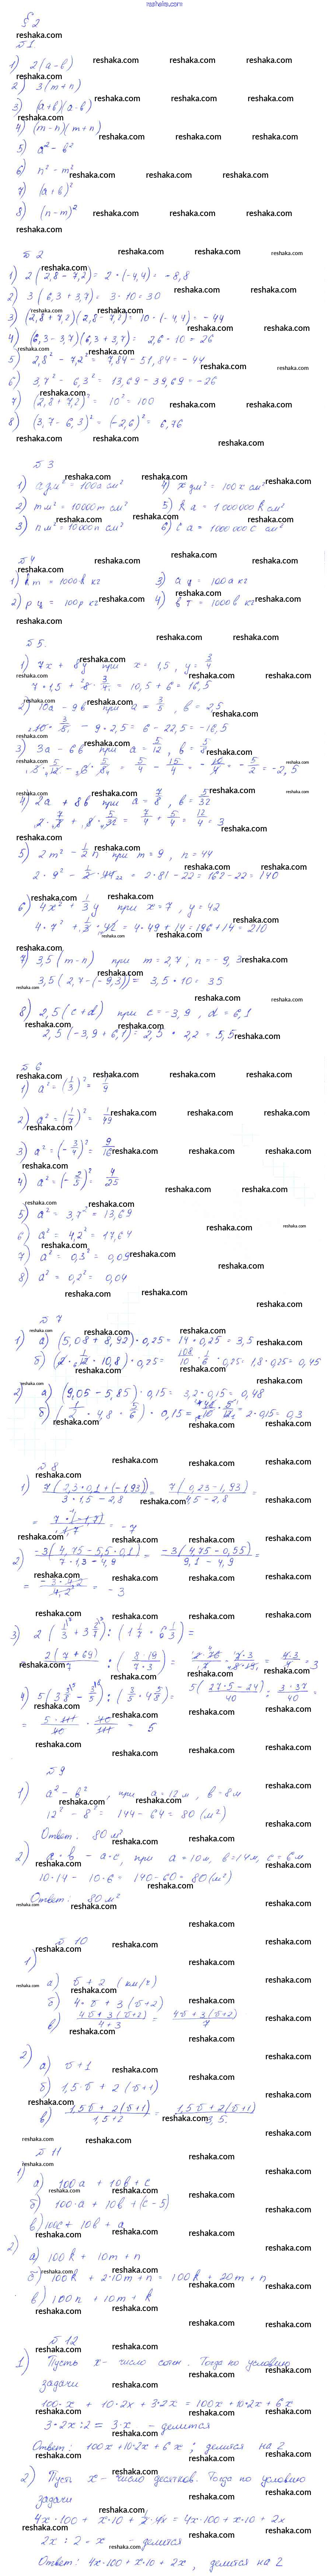 reshaka.com
§ 2
№ 1
1) 2(a-b)
2) 3(m+n)
3) (a+b)(a-b)
4) (m-n)(m+n)
5) a² - b²
6) n² - m²
7) (a+b)²
8) (n-m)²
№ 2
1) 2(2,8-7,2) = 2·(-4,4) = -8,8
2) 3(6,3+3,7) = 3·10 = 30
3) (2,8+7,2)(2,8-7,2) = 10·(-4,4) = -44
4) (6,3-3,7)(6,3+3,7) = 2,6·10 = 26
5) 2,8² - 7,2² = 7,84 - 51,84 = -44
6) 3,7² - 6,3² = 13,69 - 39,69 = -26
7) (2,8+7,2)² = 10² = 100
8) (3,7-6,3)² = (-2,6)² = 6,76
№ 3
2) m м² = 10000m см²
3) n м² = 10000n см²
4) x дм² = 100x см²
5) k а = 1000000k см²
№ 4
2) p ц = 100p кг
3) a ц = 100a кг
4) b т = 1000b кг
№ 5.
1) 7x + 8y при x = 1,5, y = 3/4
7·1,5 + 8·3/4 = 10,5 + 6 = 16,5
2) 10a - 9b при a = 3/5, b = 2,5
10·3/5 - 9·2,5 = 6 - 22,5 = -16,5
3) 3a - 6b при a = 5/12, b = 5/8
4) 2a + 8b при a = 7/8, b = 5/32
2·7/8 + 8·5/32 = 7/4 + 5/4 = 12/4 = 3
5) 2m² - 1/2 n при m = 9, n = 44
2·9² - 1/2·44 = 2·81 - 22 = 162 - 22 = 140
6) 4x² + 1/3 y при x = 7, y = 42
4·7² + 1/3·42 = 4·49 + 14 = 196 + 14 = 210
7) 3,5(m-n) при m = 2,7; n = -9,3
3,5(2,7-(-9,3)) = 3,5·10 = 35
8) 2,5(c+d) при c = -3,9, d = 6,1
2,5(-3,9+6,1) = 2,5·2,2 = 5,5
№ 6
1) a² = (1/3)² = 1/9
2) a² = (1/7)² = 1/49
3) a² = (-3/4)² = 9/16
4) a² = (-2/5)² = 4/25
5) a² = 3,7² = 13,69
6) a² = 4,2² = 17,64
7) a² = 0,3² = 0,09
8) a² = 0,2² = 0,04
№ 7
1) а) (5,08+8,92)·0,25 = 14·0,25 = 3,5
2) а) (9,05-5,85)·0,15 = 3,2·0,15 = 0,48
№ 8
1) 7(2,3·0,1+(-1,93))/(3·1,5-2,8) = 7(0,23-1,93)/(4,5-2,8) =
= -7
2) -3(4,75-5,5·0,1)/(7·1,3-4,9) = -3(4,75-0,55)/(9,1-4,9) =
= -3·4,2/4,2 = -3
№ 9
1) a² - b², при a = 12 м, b = 8 м
12² - 8² = 144 - 64 = 80 (м²)
Ответ: 80 м²
2) a·b - a·c, при a = 10 м, b = 14 м, c = 6 м
10·14 - 10·6 = 140 - 60 = 80 (м²)
Ответ: 80 м²
№ 10
1)
а) v + 2 (км/ч)
б) 4·v + 3(v+2)
в) (4v+3(v+2))/(4+3) = (4v+3(v+2))/7
2)
а) v + 1
б) 1,5·v + 2(v+1)
в) (1,5v+2(v+1))/(1,5+2) = (1,5v+2(v+1))/3,5.
№ 11
1)
а) 100a + 10b + c
б) 100·a + 10b + (c-5)
в) 100c + 10b + a
2)
а) 100k + 10m + n
б) 100k + 2·10m + n = 100k + 20m + n
в) 100n + 10m + k
№ 12
1) Пусть x - число сотен. Тогда по условию
задачи
100·x + 10·2x + 3·2x = 100x + 10·2x + 6x
3·2x : 2 = 3·x - делится
Ответ: 100x + 10·2x + 6x; делится на 2
2) Пусть x - число десятков. Тогда по условию
задачи
2x : 2 = x - делится
Ответ: 4x·100 + x·10 + 2x, делится на 2